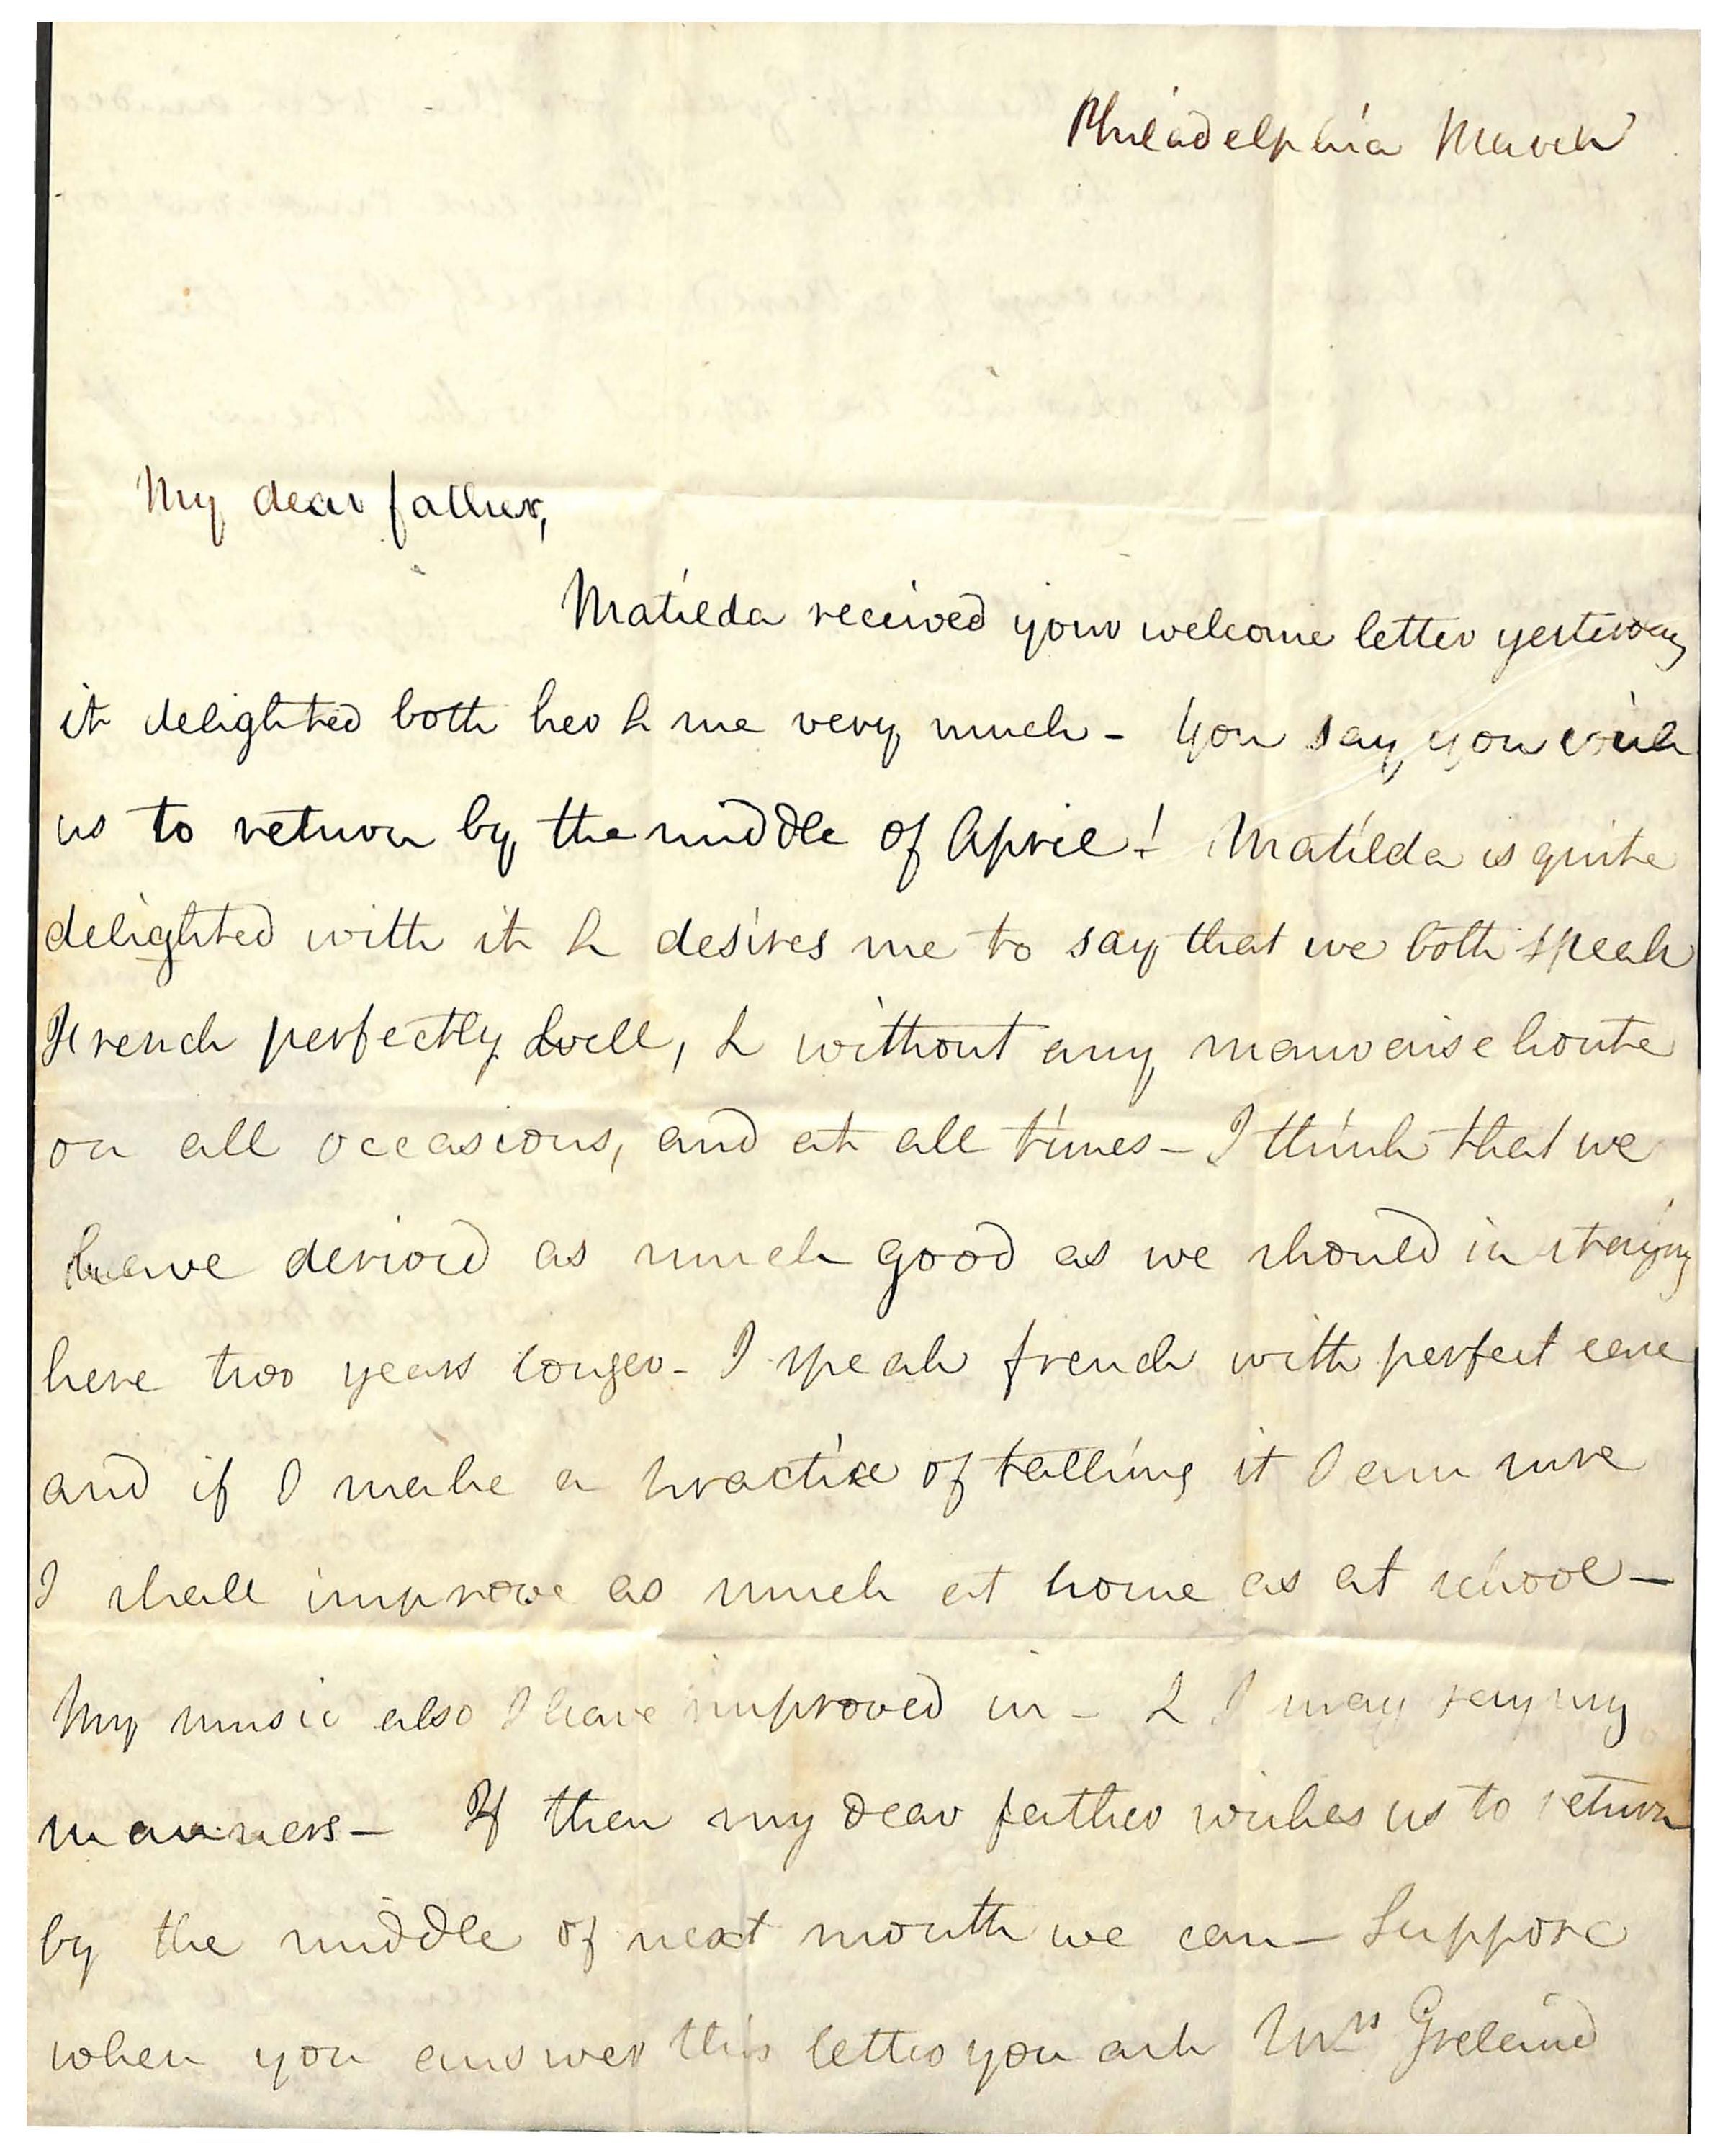 Philadelphia March
My dear father,
Matilda received your welcome letter yesterday
it delighted both her & me very much - You say you wish
us to return by the middle of April! Matilda is quite
delighted with it & desires me to say that we both speak
French perfectly well, & without any mauvaise honte
on all occasions, and at all times - I think that we
have derived as much good as we should in staying
here two years longer - I speak french with perfect ease
and if I make a practice of talking it I am sure
I shall improve as much at home as at school -
My music also I have improved in - & I may say my
manners - If then my dear father wishes us to return
by the middle of next month we can - Suppose
when you answer this letter you ask Mrs Grelaud